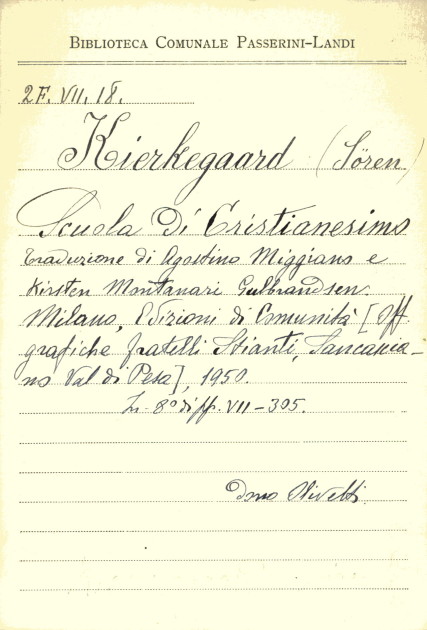 BIBLIOTECA COMUNALE PASSERINI-LANDI
2F. VII. 18.
Kierkegaard (Sören)
Scuola di Cristianesimo
traduzione di Agostino Miggiano e
Kirsten Montanari Gulbrandsen.
Milano, Edizioni di Comunità [Off.
grafiche fratelli Stianti, Sancascia-
no Val di Pesa], 1950.
In-8° di pp. VII-305.
Dono Olivetti